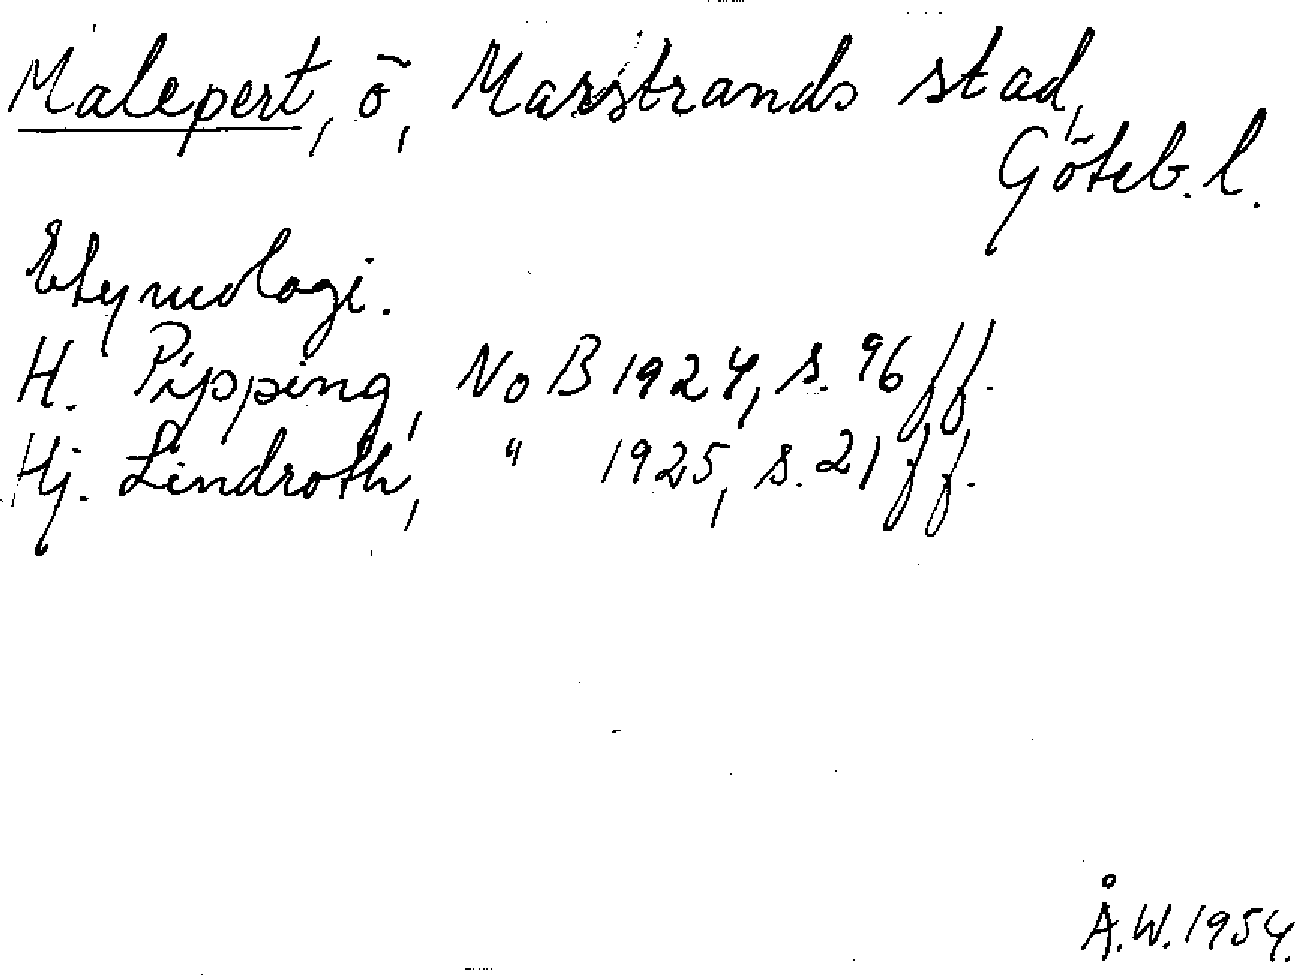 Malepert, ö, Marstrands stad,
Göteb. l.
Etymologi.
H. Pipping, NoB 1924, s. 96 ff.
Hj. Lindroth, " 1925, s. 21 ff.
Å.W. 1954.